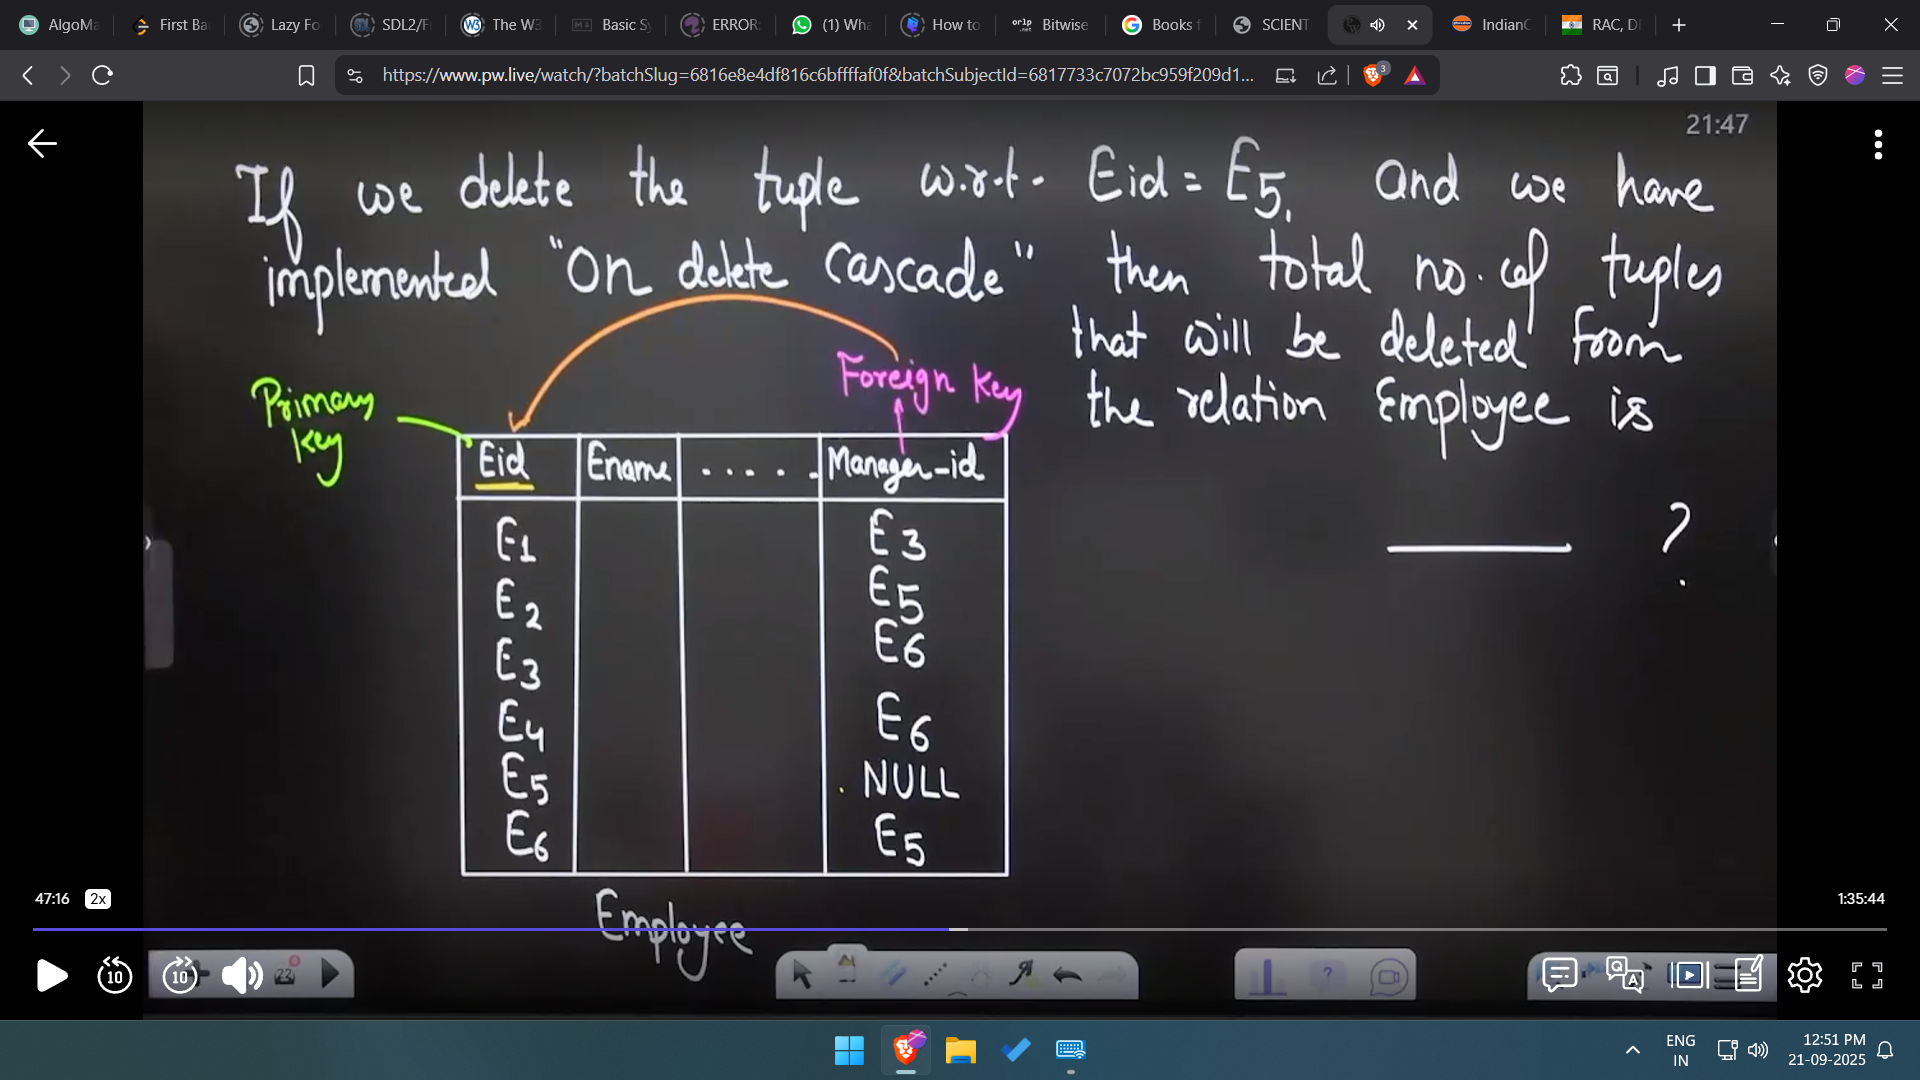 AlgoMa
First Ba
Lazy Fo
SDL2/F
The W3
Basic Sy
ERROR:
(1) Wha
How to
Bitwise
Books f
SCIENT
IndianC
RAC, D
https://www.pw.live/watch/?batchSlug=6816e8e4df816c6bffffaf0f&batchSubjectId=6817733c7072bc959f209d1...
3
21:47
If we delete the tuple w.r.t. Eid = E5, and we have
implemented "On delete Cascade" then total no. of tuples
that will be deleted from
the relation Employee is
______ ?
Foreign key
Primary
key
Eid Ename ..... Manager-id
E1 E3
E2 E5
E3 E6
E4 E6
E5 NULL
E6 E5
Employee
47:16 2x 1:35:44
10 10 22
ENG
IN
12:51 PM
21-09-2025